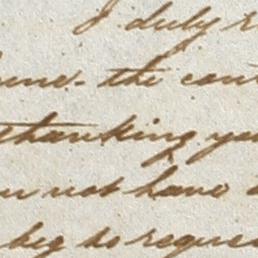 I duly r
une - the con
thanking yo
u not have
beg to reques